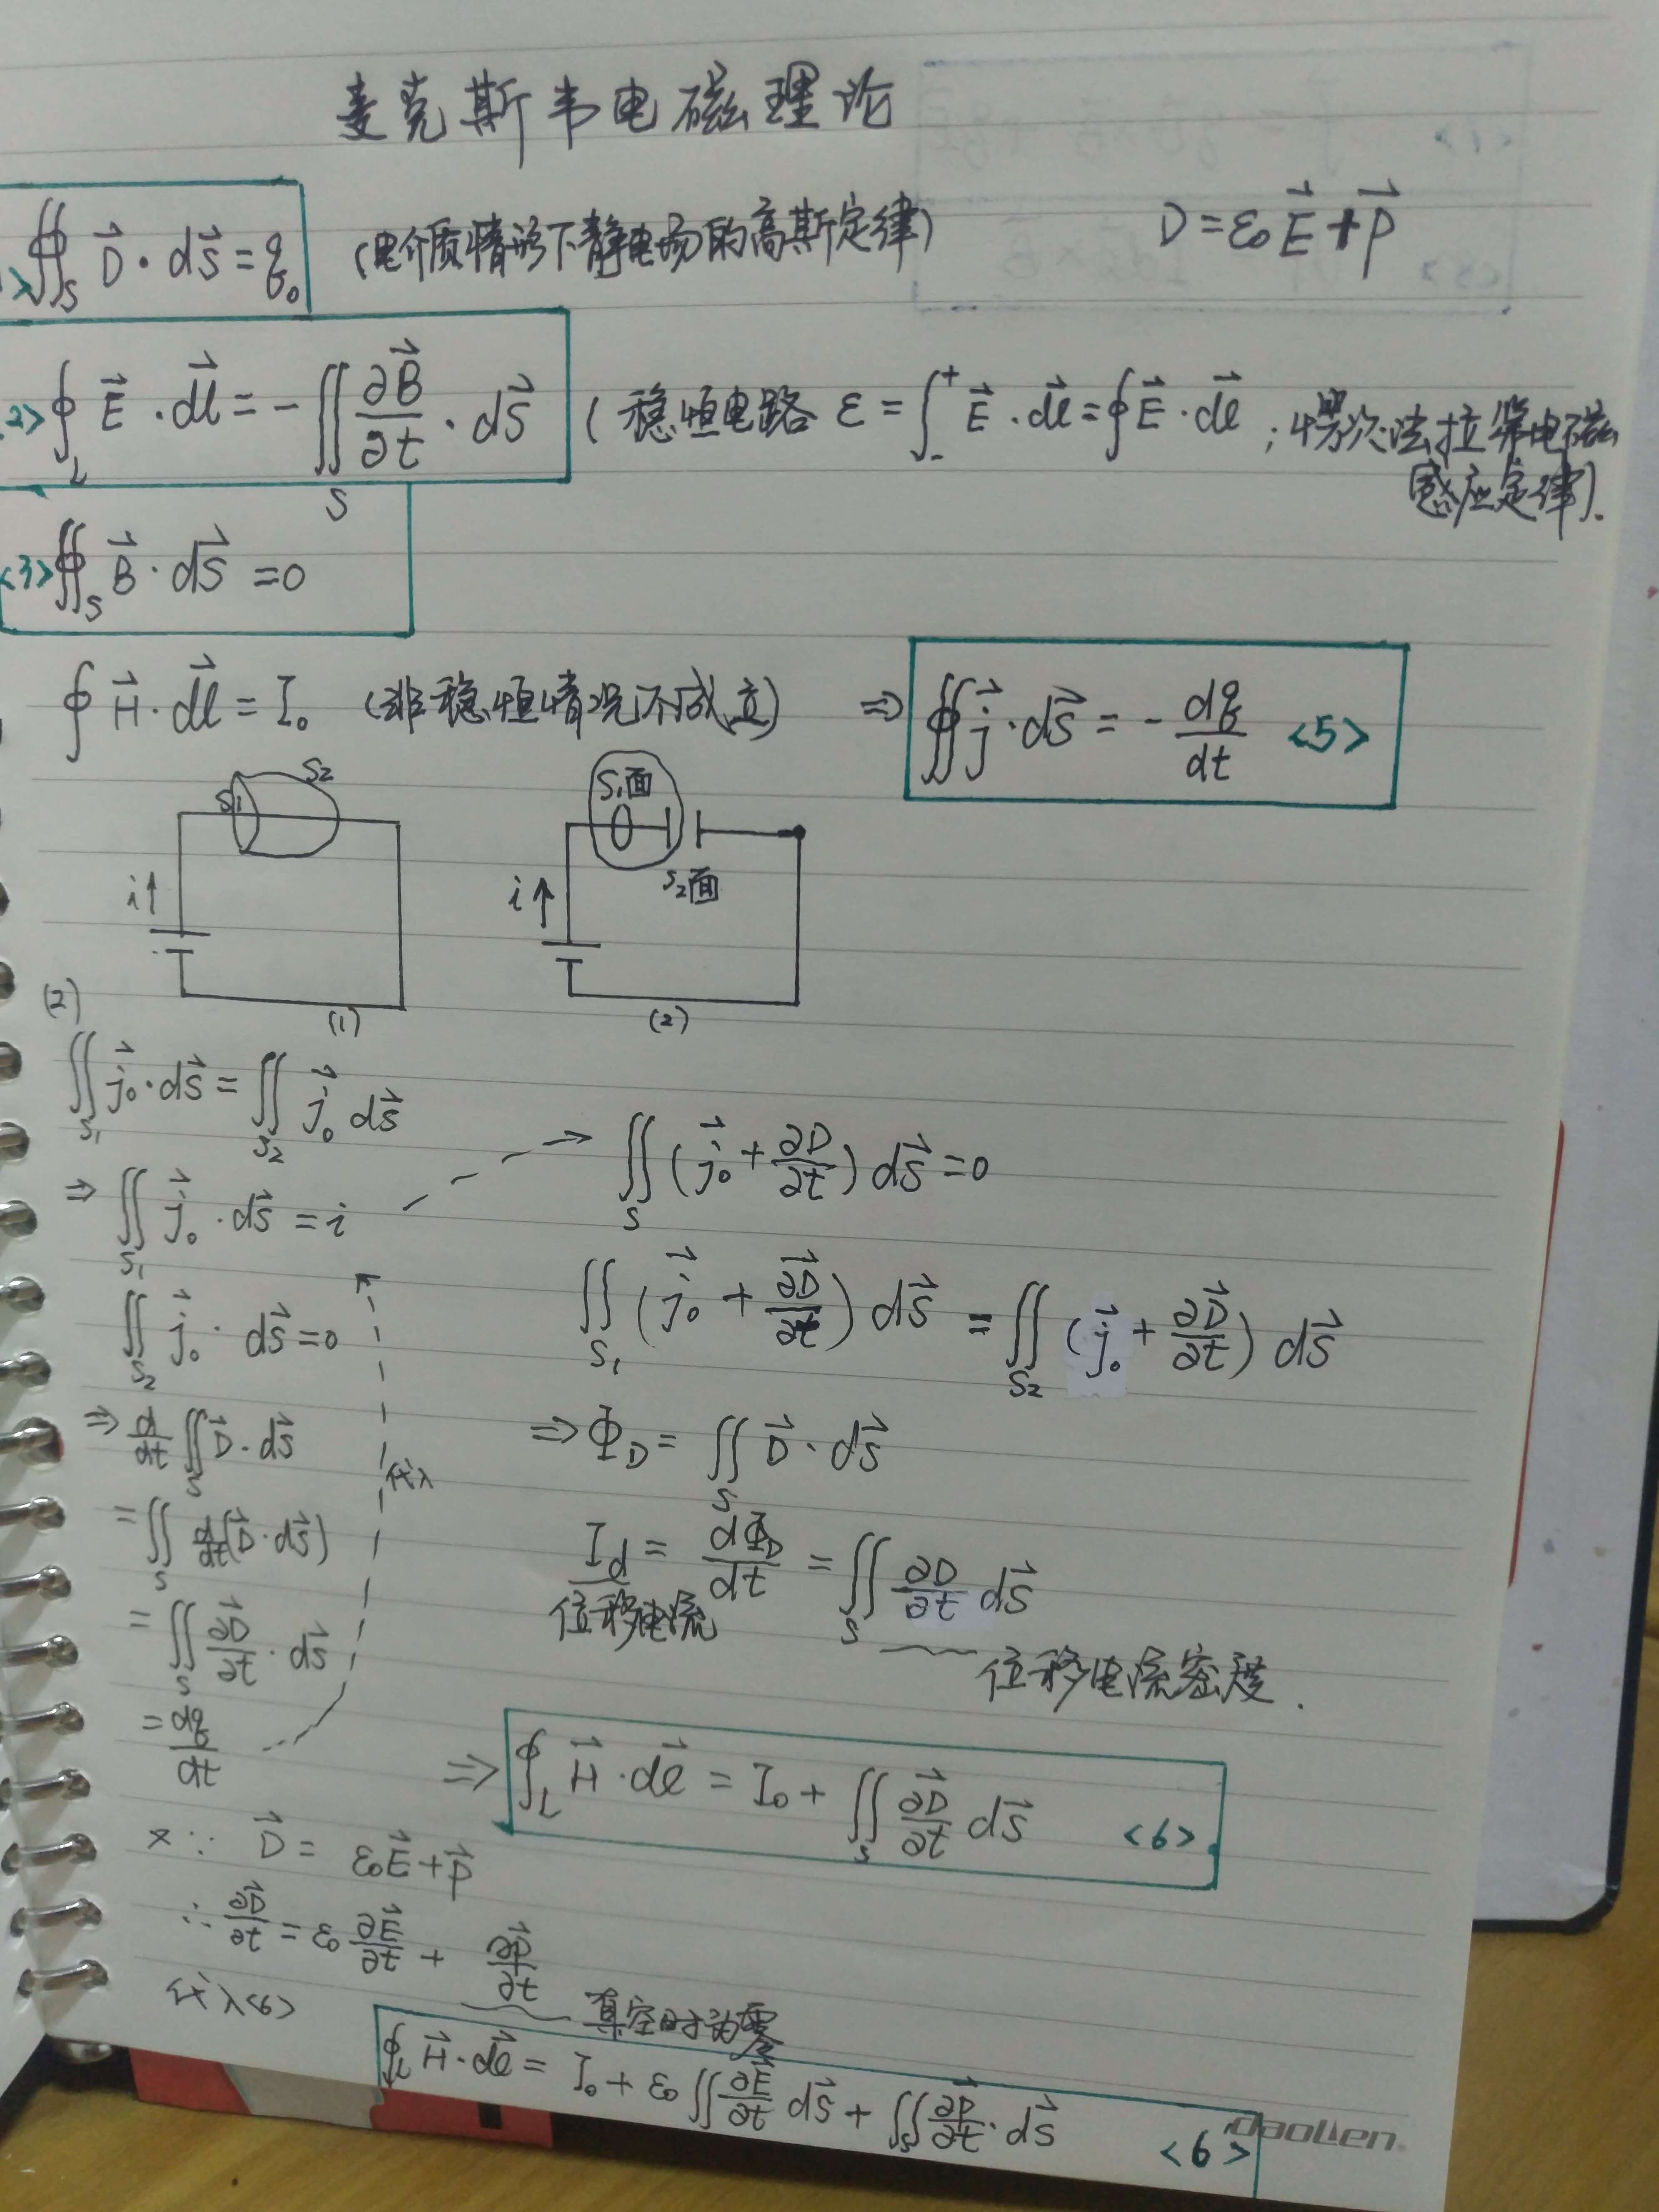 麦克斯韦电磁理论
∯_S D⃗·dS⃗ = q₀ (电介质情形下静电场的高斯定律) D = ε₀E⃗ + P⃗
2> ∮_L E⃗·dl⃗ = -∬_S ∂B⃗/∂t · dS⃗ (稳恒电路 ε = ∫₋⁺ E⃗·dl⃗ = ∮E⃗·dl⃗ ; 楞次法拉第电磁
感应定律).
<3> ∯_S B⃗·dS⃗ = 0
∮ H⃗·dl⃗ = I₀ (非稳恒情况不成立) ⇒ ∯ j⃗·dS⃗ = - dq/dt <5>
S₁ S₂ i↑ (1)
S₁面 S₂面 i↑ (2)
(2)
∬_S₁ j⃗₀·dS⃗ = ∬_S₂ j⃗₀ dS⃗
⇒ ∬_S₁ j⃗₀·dS⃗ = i
∬_S₂ j⃗₀·dS⃗ = 0
⇒ d/dt ∬_S D⃗·dS⃗
= ∬_S d/dt(D⃗·dS⃗)
= ∬_S ∂D⃗/∂t · dS⃗
= dq/dt
代入
∬_S (j⃗₀ + ∂D/∂t) dS⃗ = 0
∬_S₁ (j⃗₀ + ∂D⃗/∂t) dS⃗ = ∬_S₂ (j⃗₀ + ∂D⃗/∂t) dS⃗
⇒ Φ_D = ∬_S D⃗·dS⃗
I_d = dΦ_D/dt = ∬_S ∂D/∂t dS⃗
位移电流
位移电流密度.
⇒ ∮_L H⃗·dl⃗ = I₀ + ∬_S ∂D⃗/∂t dS⃗ <6>
∵ D⃗ = ε₀E⃗ + P⃗
∴ ∂D⃗/∂t = ε₀ ∂E⃗/∂t + ∂P⃗/∂t
代入<6>
真空时为零
∮_L H⃗·dl⃗ = I₀ + ε₀ ∬ ∂E⃗/∂t dS⃗ + ∬_S ∂P⃗/∂t · dS⃗ <6>